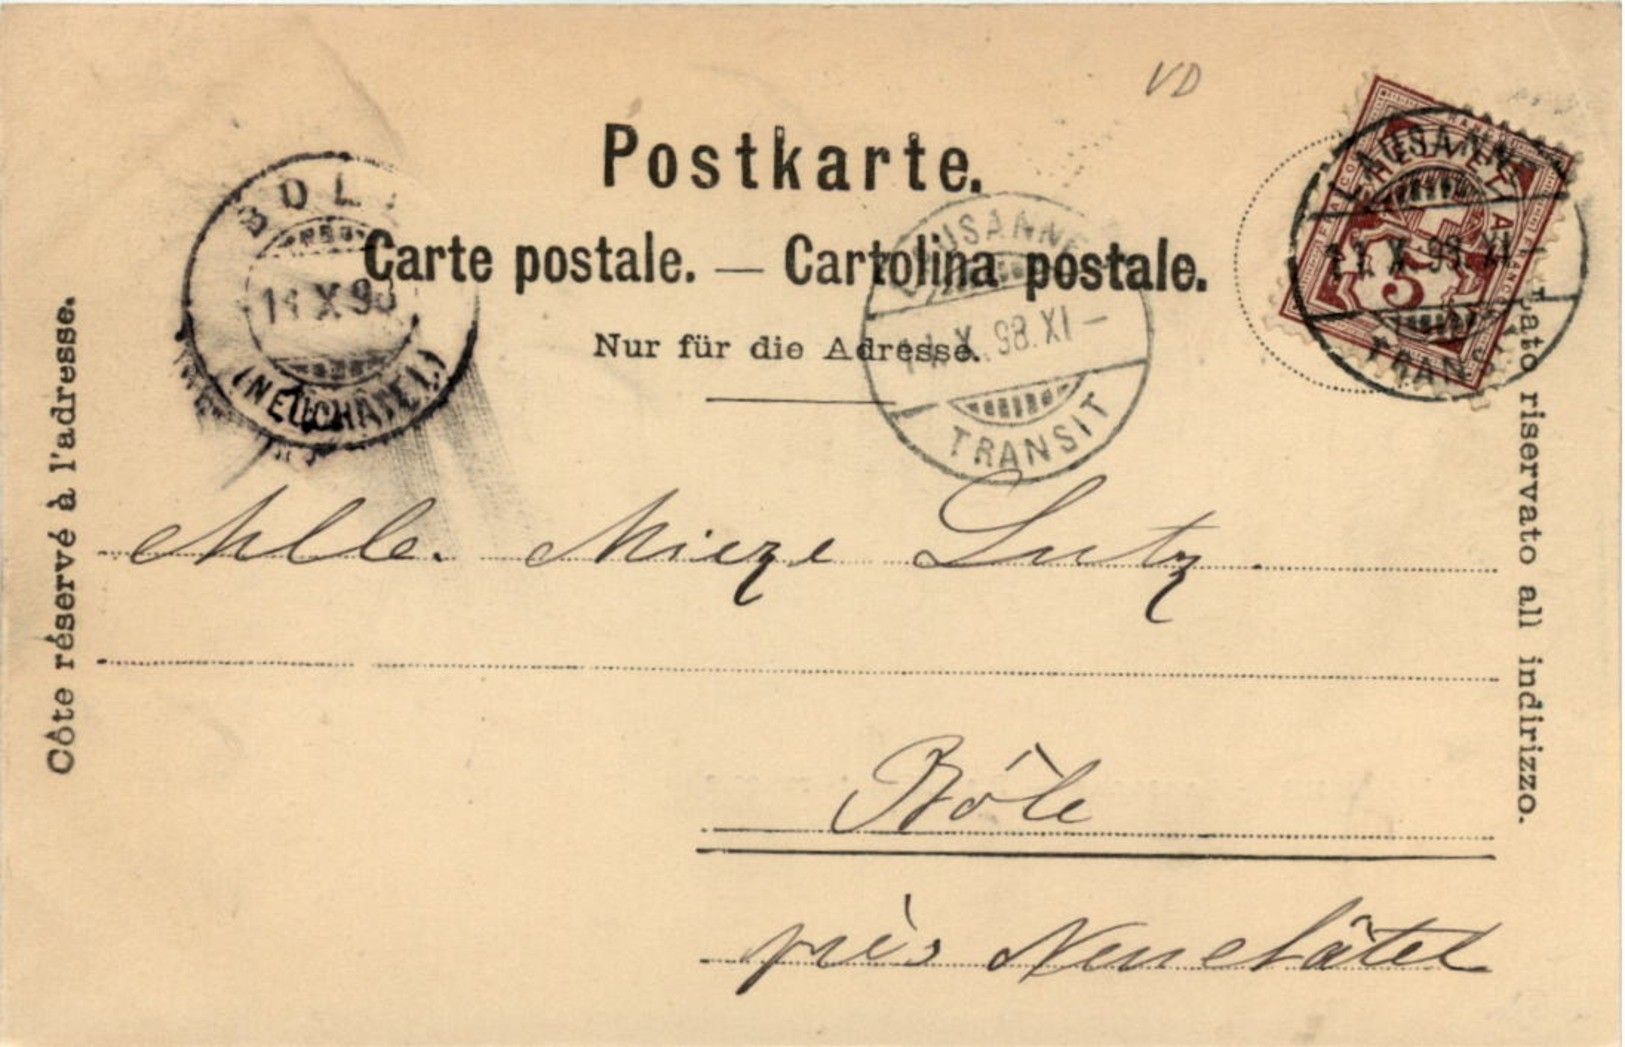 VD
Postkarte.
Carte postale. — Cartolina postale.
Nur für die Adresse.
Côte réservé à l'adresse.
Lato riservato all indirizzo.
BOL
X 98
(NEUCHATEL)
LAUSANNE
X. 98. XI –
TRANSIT
LAUSANNE
11. X 98. XI –
TRANS
HELVETIA
5
Mlle. Mieze Lutz.
Bôle
près Neuchâtel